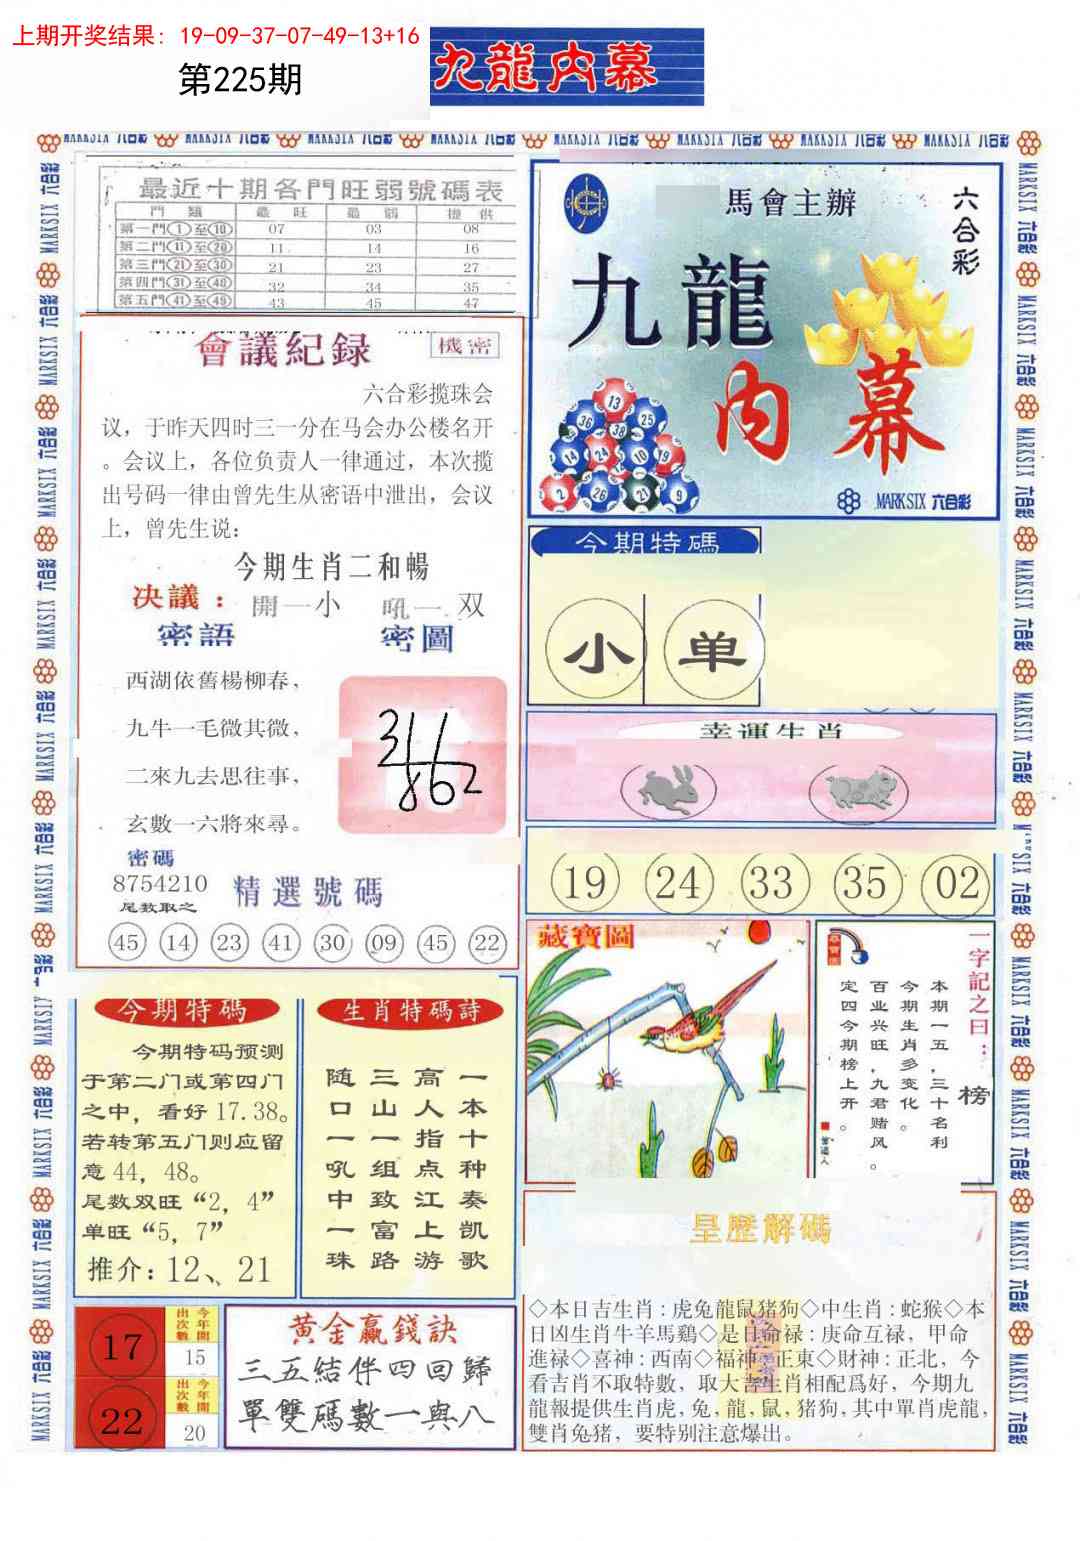 上期开奖结果: 19-09-37-07-49-13+16
第225期
九龍内幕
最近十期各門旺弱號碼表
門類 最旺 最弱 提供
第一門①至⑩ 07 03 08
第二門⑪至⑳ 11 14 16
第三門㉑至㉚ 21 23 27
第四門㉛至㊵ 32 34 35
第五門㊶至㊾ 43 45 47
會議紀録 機密
六合彩揽珠会
议，于昨天四时三一分在马会办公楼名开
。会议上，各位负责人一律通过，本次揽
出号码一律由曾先生从密语中泄出，会议
上，曾先生说：
今期生肖二和暢
决議： 開一小 吼一双
密語 密圖
西湖依舊楊柳春，
九牛一毛微其微，
二來九去思往事，
玄數一六將來尋。
密碼
8754210
尾数取之
精選號碼
45 14 23 41 30 09 45 22
馬會主辦
六合彩
九龍
内幕
13
36 25
38
14 24 10 19
2 26 21 9
MARKSIX 六合彩
今期特碼
小 单
幸運生肖
19 24 33 35 02
藏寶圖
一字記之曰：榜
本期一五，三十名利
今期生肖多变化。
百业兴旺，九君赌风。
定四今期榜上开。
今期特碼
今期特码预测
于第二门或第四门
之中，看好17.38。
若转第五门则应留
意44，48。
尾数双旺“2，4”
单旺“5，7”
推介：12、21
生肖特碼詩
一本十种奏凯歌
高人指点江上游
三山一组致富路
随口一吼中一珠
17 今年開出次數 15
22 今年開出次數 20
黄金贏錢訣
三五結伴四回歸
單雙碼數一與八
皇歷解碼
◇本日吉生肖：虎兔龍鼠猪狗◇中生肖：蛇猴◇本
日凶生肖牛羊馬鷄◇是日命禄：庚命互禄，甲命
進禄◇喜神：西南◇福神：正東◇財神：正北，今
看吉肖不取特數，取大吉生肖相配爲好，今期九
龍報提供生肖虎，兔，龍，鼠，猪狗，其中單肖虎龍，
雙肖兔猪，要特别注意爆出。